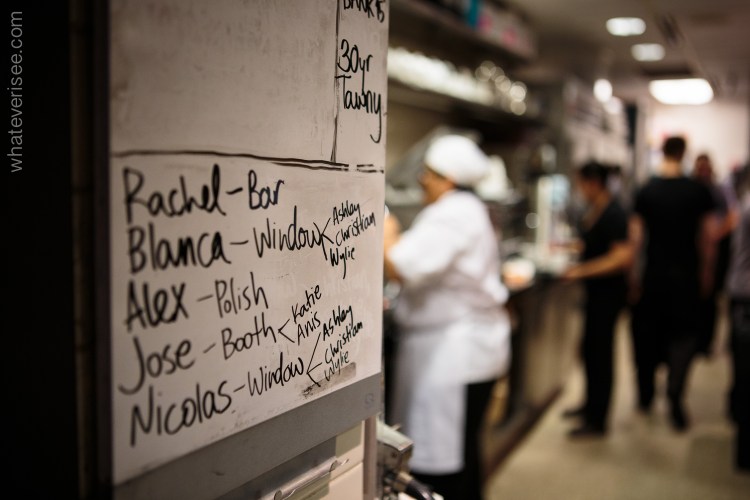 whateverisee.com
30yr
Tawny
Rachel-Bar
Blanca-Window< Ashley
Christiam
Wylie
Alex-Polish
Jose-Booth< Katie
Anis
Nicolas-Window< Ashley
Christiam
Wylie